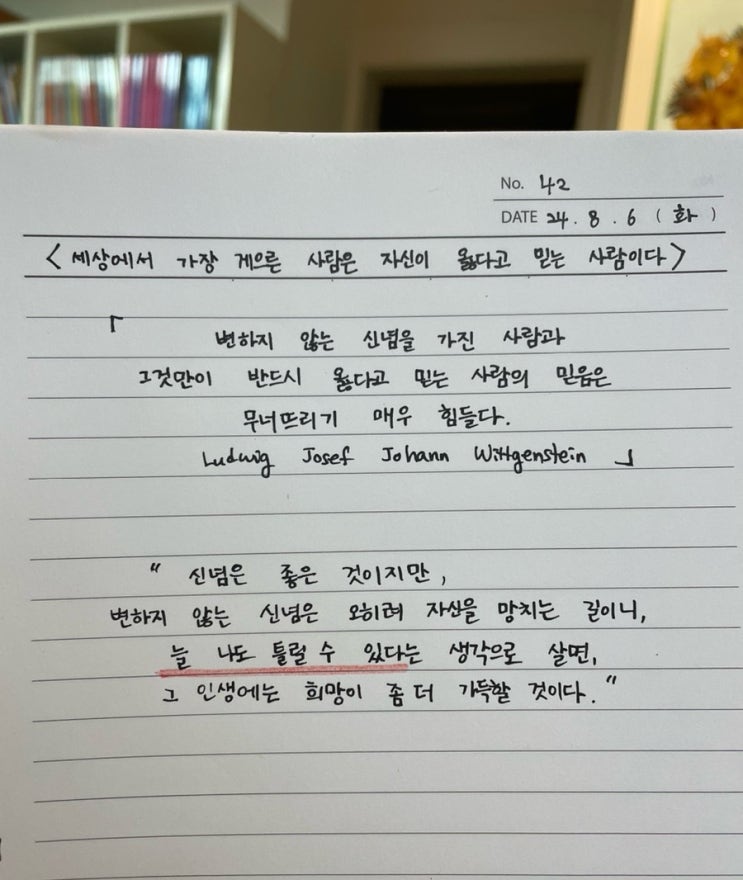 No. 42
DATE 24. 8. 6 (화)
<세상에서 가장 게으른 사람은 자신이 옳다고 믿는 사람이다>
「
변하지 않는 신념을 가진 사람과
그것만이 반드시 옳다고 믿는 사람의 믿음은
무너뜨리기 매우 힘들다.
Ludwig Josef Johann Wittgenstein 」
“ 신념은 좋은 것이지만,
변하지 않는 신념은 오히려 자신을 망치는 길이니,
늘 나도 틀릴 수 있다는 생각으로 살면,
그 인생에는 희망이 좀 더 가득할 것이다.”